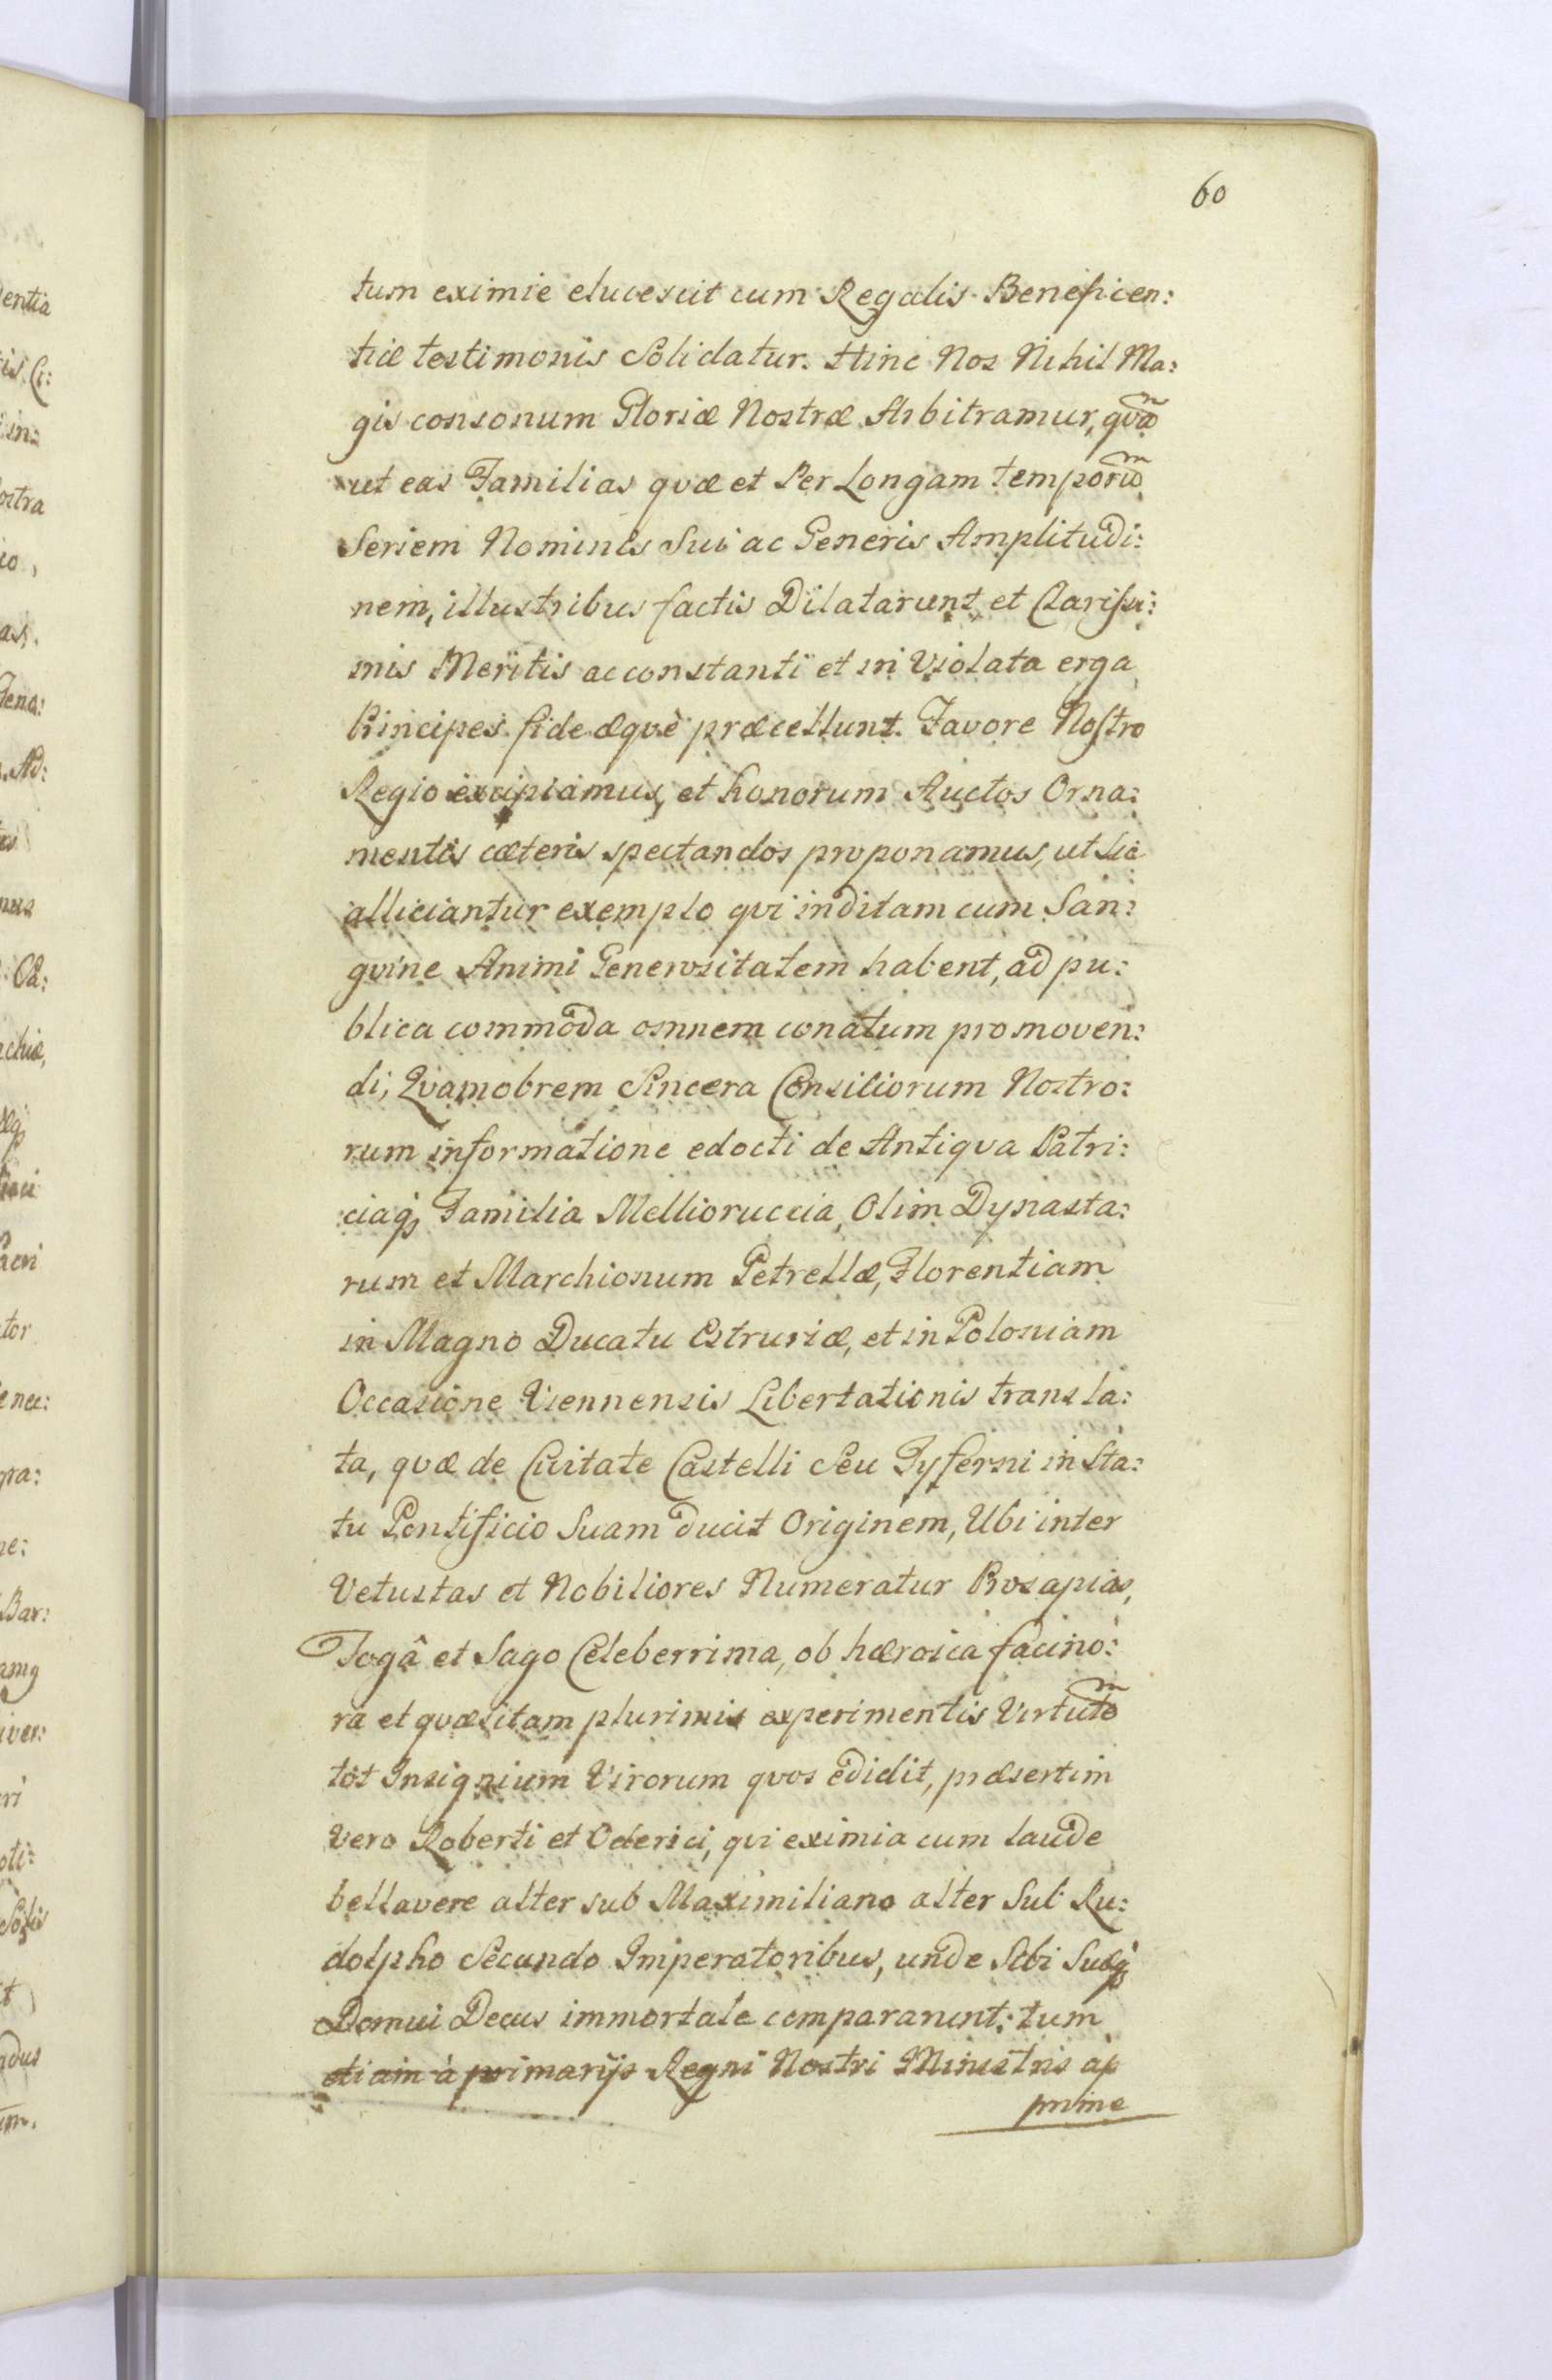 60
tum eximie elucescit cum Regalis Beneficen:
tiæ testimonis Solidatur. Hinc Nos Nihil Ma:
gis consonum Gloriæ Nostræ Arbitramur, qvam̃
ut eas Familias qvæ et Per Longam temporum̃
Seriem Nominis Sui ac Generis Amplitudi:
nem, illustribus factis Dilatarunt et Clarissi:
mis Meritis ac constanti et in Violata erga
Principes fide æqvè præcellunt. Favore Nostro
Regio excipiamus, et honorum Auctos Orna:
mentis cæteris spectandos proponamus, ut sic
alliciantur exemplo qvi inditam cum San:
gvine Animi Generositatem habent, ad pu:
blica commoda omnem conatum promoven:
di, Qvamobrem Sincera Consiliorum Nostro:
rum informatione edocti de Antiqva Patri:
ciaq₃ Familia Mellioruccia, Olim Dynasta:
rum et Marchionum Petrellæ, Florentiam
in Magno Ducatu Estruriæ, et in Poloniam
Occasione Viennensis Libertationis transla:
ta, qvæ de Civitate Castelli Seu Tyferni in Sta:
tu Pontificio Suam ducit Originem, Ubi inter
Vetustas et Nobiliores Numeratur Prosapias,
Togâ et Sago Celeberrima, ob hæroica facino:
ra et qvæsitam plurimis experimentis Virtutem̃
tot Insignium Virorum qvos edidit, præsertim
Vero Roberti et Oderici, qvi eximia cum laude
bellavere alter sub Maximiliano alter Sub Ru:
dolpho Secundo Imperatoribus, unde Sibi Suæq₃
Domui Decus immortale compararunt: tum
etiam à primarijs Regni Nostri Ministris ap
prime